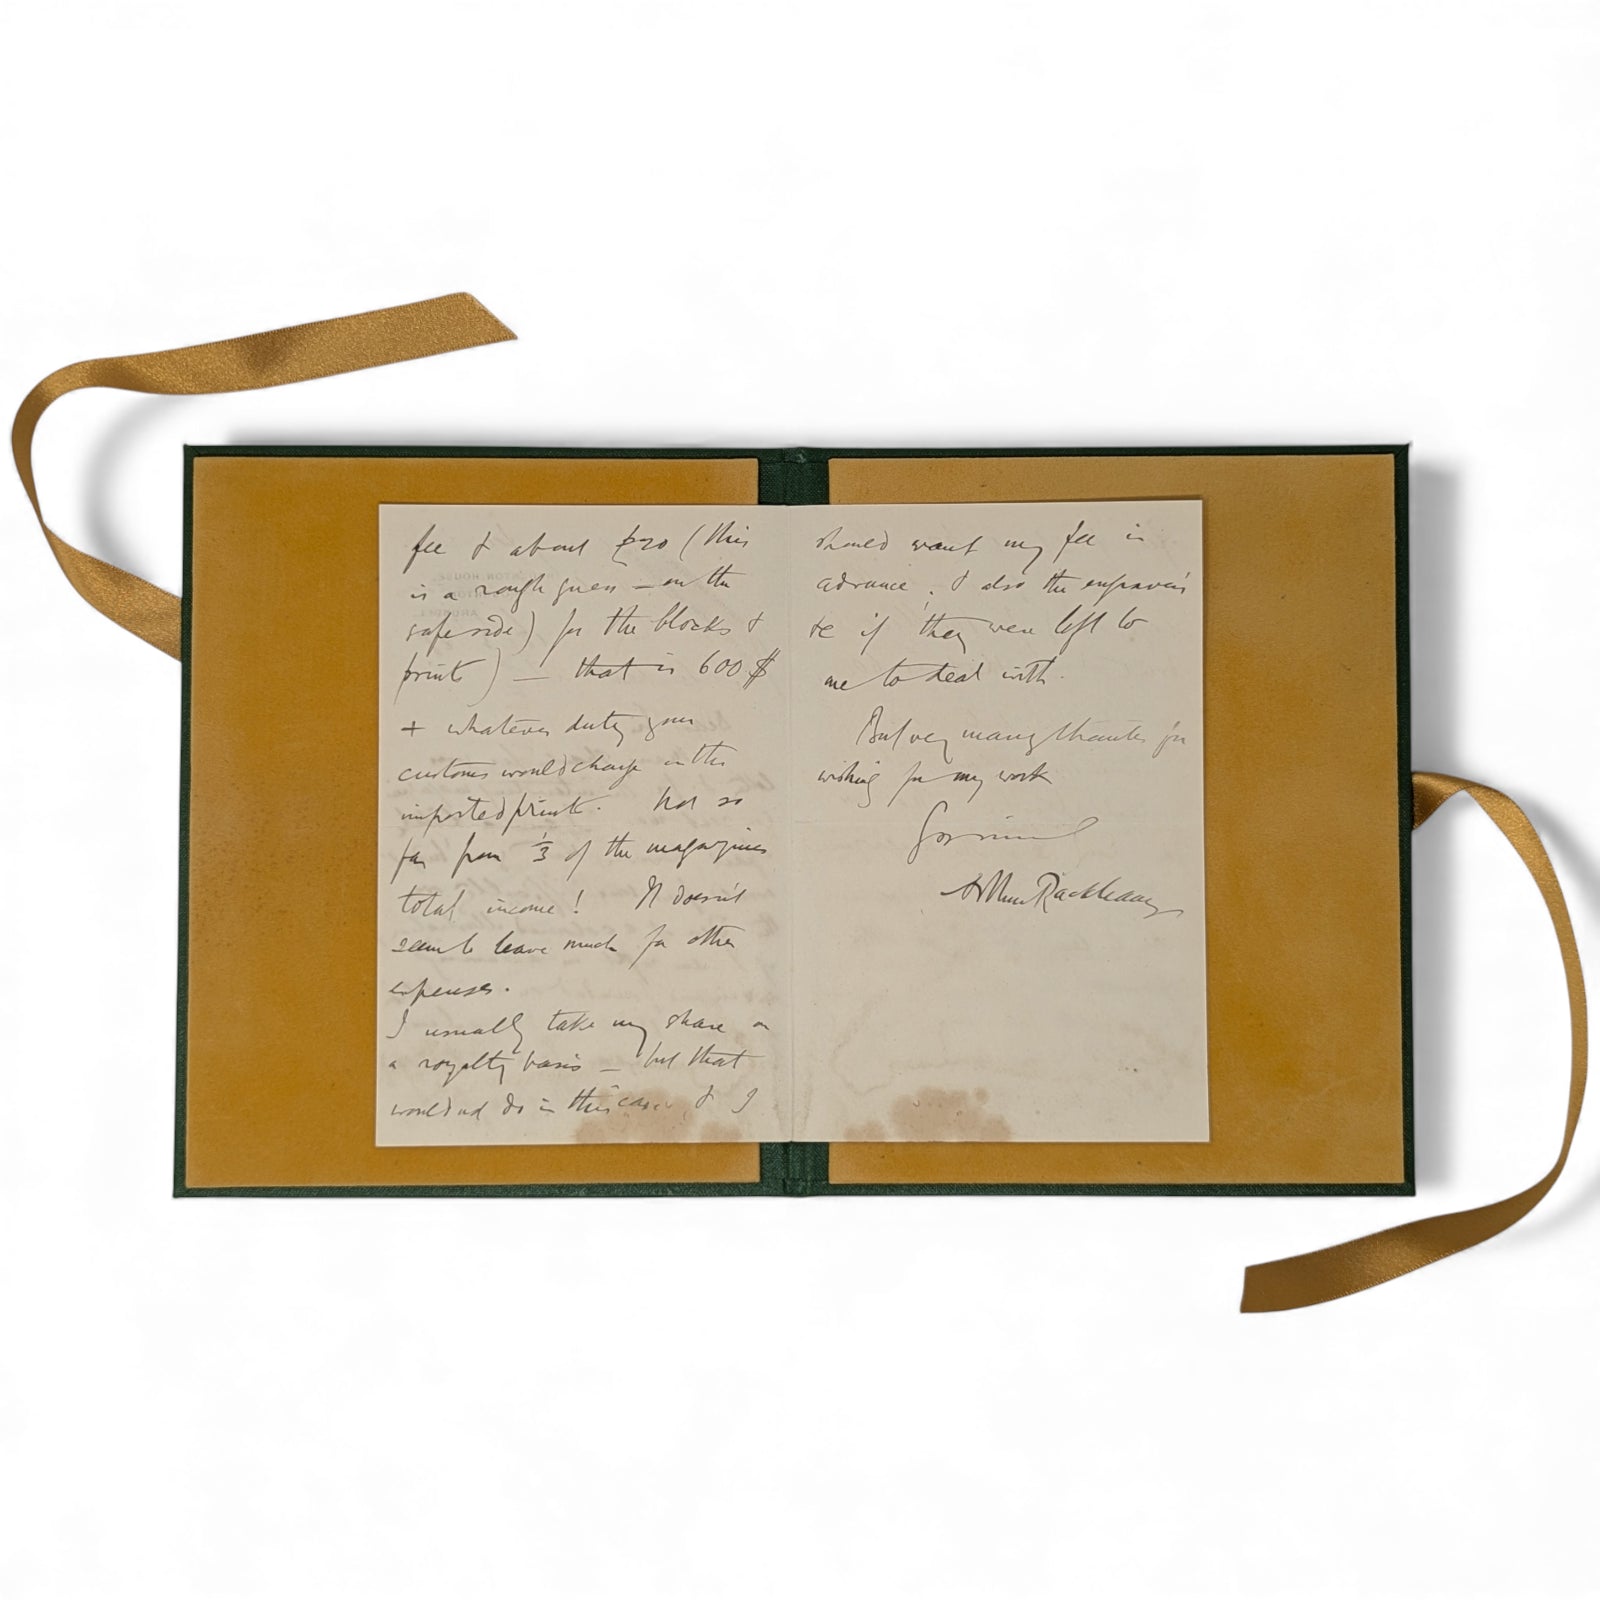 fee & about £20 (this
is a rough guess – on the
safe side) for the blocks &
prints) – that is 600 $
+ whatever duty your
customs would charge on the
imported prints. Not so
far from ⅓ of the magazines
total income! It doesn't
seem to leave much for other
expenses.
I usually take my share on
a royalty basis – but that
would not do in this case, & I
should want my fee in
advance, & also the engravers
&c if they were left to
me to deal with.
But very many thanks for
wishing for my work
Arthur Rackham